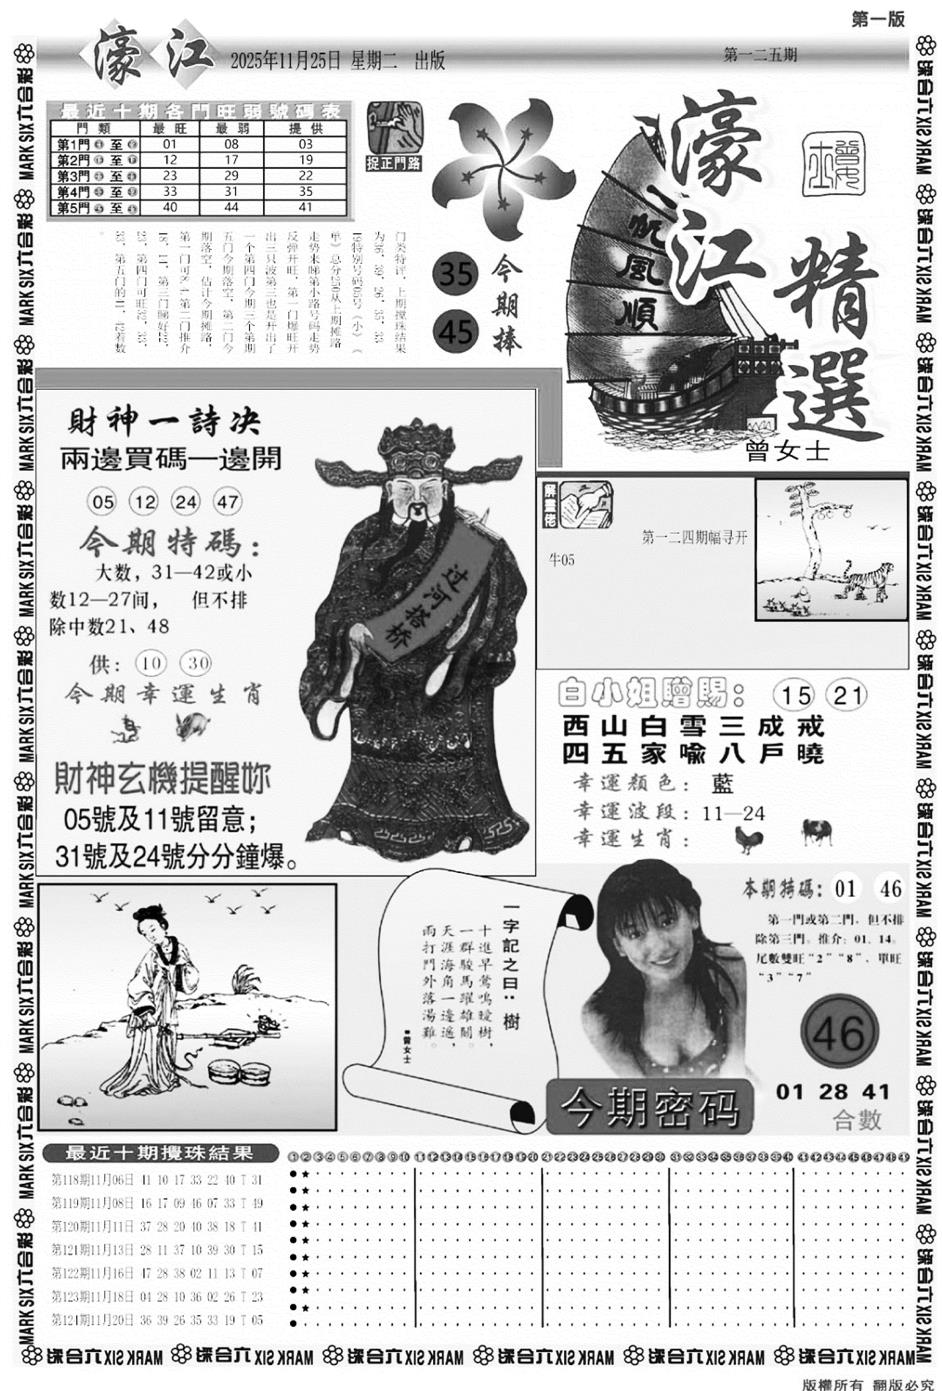 第一版
濠江 2025年11月25日 星期二 出版
第一二五期
最近十期各門旺弱號碼表
門類 最旺 最弱 提供
第1門 至 01 08 03
第2門 至 12 17 19
第3門 至 23 29 22
第4門 至 33 31 35
第5門 至 40 44 41
捉正門路
35
45
今期捧
一帆風順
濠江
精選
曾女士
門类特评，上期搅珠结果
为36、39、26、35、33
19特别号码05号（小）（
单）总分193从上期摊路
走势来睇第小路号码走势
反弹开旺，第一门爆旺开
出三只波第三也是开出了
一个第四门今期三个第期
五门今期落空，第二门今
期落空，估计今期摊路，
財神一詩决
兩邊買碼一邊開
05 12 24 47
今期特碼：
大数，31—42或小
数12—27间， 但不排
除中数21、48
供： 10 30
今期幸運生肖
財神玄機提醒妳
05號及11號留意；
31號及24號分分鐘爆。
过河搭桥
解畫佬
第一二四期幅寻开
牛05
白小姐贈賜： 15 21
西山白雪三成戒
四五家喻八戶曉
幸運顏色：藍
幸運波段：11—24
幸運生肖：
一字記之曰：樹
十進早鶯鳴暖樹，
一群駿馬躍雄關。
天涯海角一邊遙，
雨打門外落湯雞。
■曾女士
本期特碼：01 46
第一門或第二門，但不排
除第三門。推介：01、14。
尾數雙旺“2”“8”、單旺
“3”“7”
46
01 28 41
合數
今期密码
最近十期攪珠結果
第118期11月06日 41 10 17 33 22 40 T 31
第119期11月08日 16 17 09 46 07 33 T 49
第120期11月11日 37 28 20 40 38 18 T 41
第121期11月13日 28 11 37 10 39 30 T 15
第122期11月16日 47 28 38 02 11 13 T 07
第123期11月18日 04 28 10 36 02 26 T 23
第124期11月20日 36 39 26 35 33 19 T 05
①②③④⑤⑥⑦⑧⑨⑩⑪⑫⑬⑭⑮⑯⑰⑱⑲⑳㉑㉒㉓㉔㉕㉖㉗㉘㉙㉚㉛㉜㉝㉞㉟㊱㊲㊳㊴㊵㊶㊷㊸㊹㊺㊻㊼㊽㊾
MARK SIX六合彩
版權所有 翻版必究